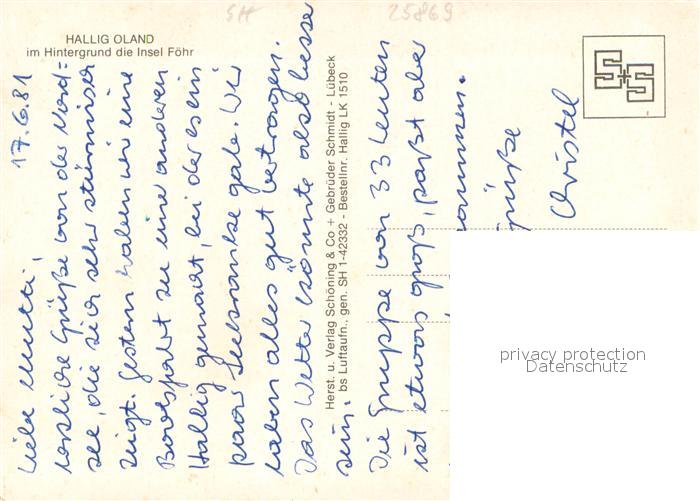 SH
25869
HALLIG OLAND
im Hintergrund die Insel Föhr
17.6.81
Liebe Mutti,
herzliche Grüße von der Nord=
see, die sich sehr stürmisch
zeigt. Gestern haben wir eine
Bootsfahrt zu einer anderen
Hallig gemacht, bei der es ein
paar Seekranke gab. Wir
haben alles gut vertragen.
Das Wetter könnte also besser
sein.
Die Gruppe von 33 Leuten
ist etwas groß, paßt aber
Grüße
Christel
Herst. u. Verlag Schöning & Co + Gebrüder Schmidt - Lübeck
bs Luftaufn., gen. SH 1-42332 - Bestellnr. Hallig LK 1510
privacy protection
Datenschutz